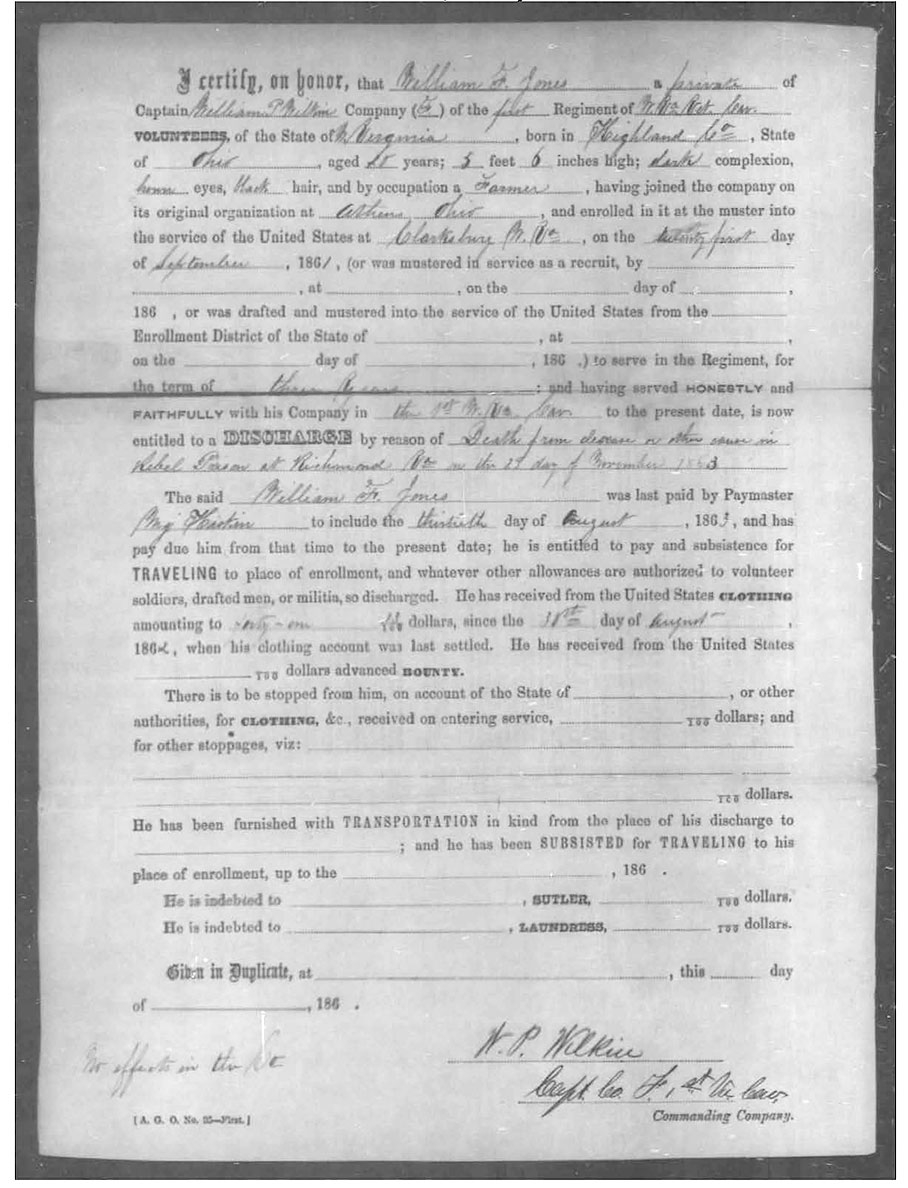 I certify, on honor, that William F. Jones a private of
Captain William P Wilkin Company (F) of the first Regiment of W. Va Vet. Cav.
VOLUNTEERS, of the State of W. Virginia, born in Highland Co, State
of Ohio, aged 20 years; 5 feet 6 inches high; dark complexion,
brown eyes, black hair, and by occupation a Farmer, having joined the company on
its original organization at Athens Ohio, and enrolled in it at the muster into
the service of the United States at Clarksburg W. Va, on the first day
of September, 1861, (or was mustered in service as a recruit, by
, at , on the day of ,
186 , or was drafted and mustered into the service of the United States from the
Enrollment District of the State of , at ,
on the day of , 186 .) to serve in the Regiment, for
the term of three years : and having served HONESTLY and
FAITHFULLY with his Company in the 1st W. Va. Cav to the present date, is now
entitled to a DISCHARGE by reason of Death from disease or other cause in
Rebel Prison at Richmond Va on the day of November 1863
The said William F. Jones was last paid by Paymaster
Maj to include the thirtieth day of August, 1863, and has
pay due him from that time to the present date; he is entitled to pay and subsistence for
TRAVELING to place of enrollment, and whatever other allowances are authorized to volunteer
soldiers, drafted men, or militia, so discharged. He has received from the United States CLOTHING
amounting to dollars, since the 30th day of August,
186 , when his clothing account was last settled. He has received from the United States
100 dollars advanced BOUNTY.
There is to be stopped from him, on account of the State of , or other
authorities, for CLOTHING, &c., received on entering service, 100 dollars; and
for other stoppages, viz:
100 dollars.
He has been furnished with TRANSPORTATION in kind from the place of his discharge to
; and he has been SUBSISTED for TRAVELING to his
place of enrollment, up to the , 186 .
He is indebted to , SUTLER, 100 dollars.
He is indebted to , LAUNDRESS, 100 dollars.
Given in Duplicate, at , this day
of , 186 .
W. P. Wilkin
No effects in the Co
Capt. Co. F, 1st Va Cav.
[A. G. O. No. 25—First.]
Commanding Company.